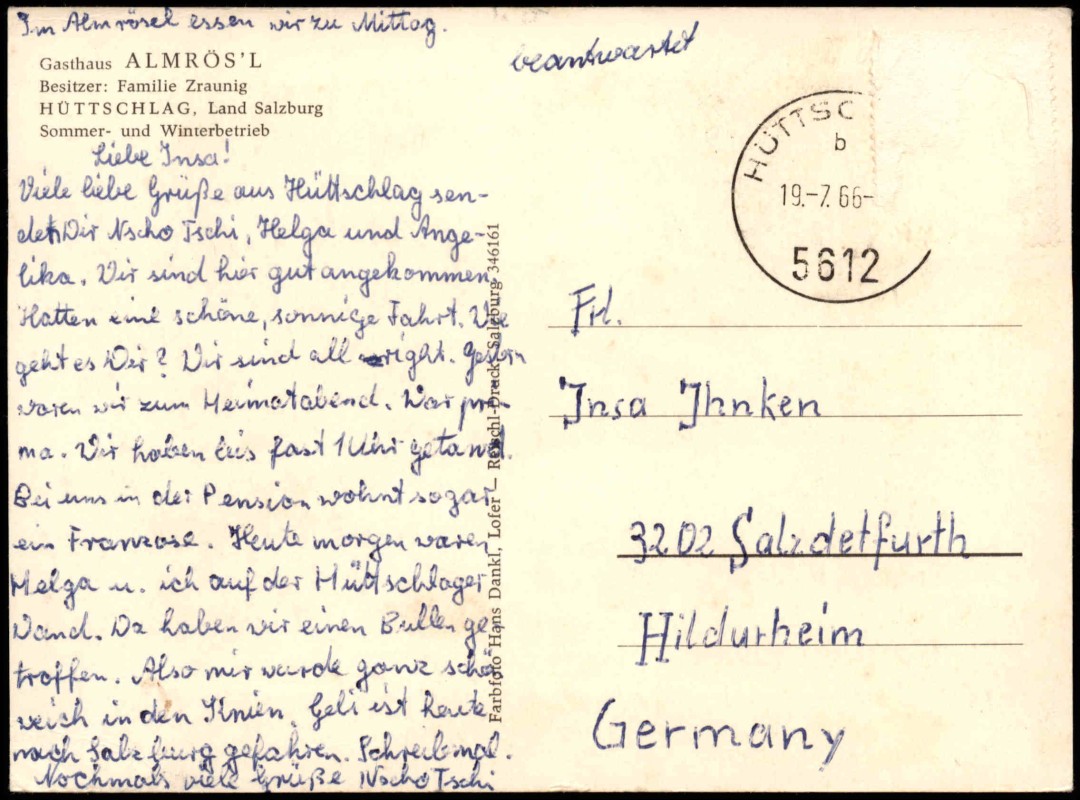 Im Almrösel essen wir zu Mittag.
Gasthaus ALMRÖS'L
Besitzer: Familie Zraunig
HÜTTSCHLAG, Land Salzburg
Sommer- und Winterbetrieb
Liebe Insa!
Viele liebe Grüße aus Hüttschlag sen-
den Dir Nscho Tschi, Helga und Ange-
lika. Wir sind hier gut angekommen.
Hatten eine schöne, sonnige Fahrt. Wie
geht es Dir? Wir sind all right. Gestern
waren wir zum Heimatabend. War pri-
ma. Wir haben bis fast 1 Uhr getanzt.
Bei uns in der Pension wohnt sogar
ein Franzose. Heute morgen waren
Helga u. ich auf der Hüttschlager
Wand. Da haben wir einen Bullen ge
troffen. Also mir wurde ganz schön
weich in den Knien. Geli ist heute
nach Salzburg gefahren. Schreib mal.
Nochmals viele Grüße Nscho Tschi
Farbfoto Hans Dankl, Lofer – Repschl-Druck, Salzburg 346161
beantwortet
HÜTTSC
b
19.-7.66-
5612
Frl.
Insa Ihnken
3202 Salzdetfurth
Hildurheim
Germany